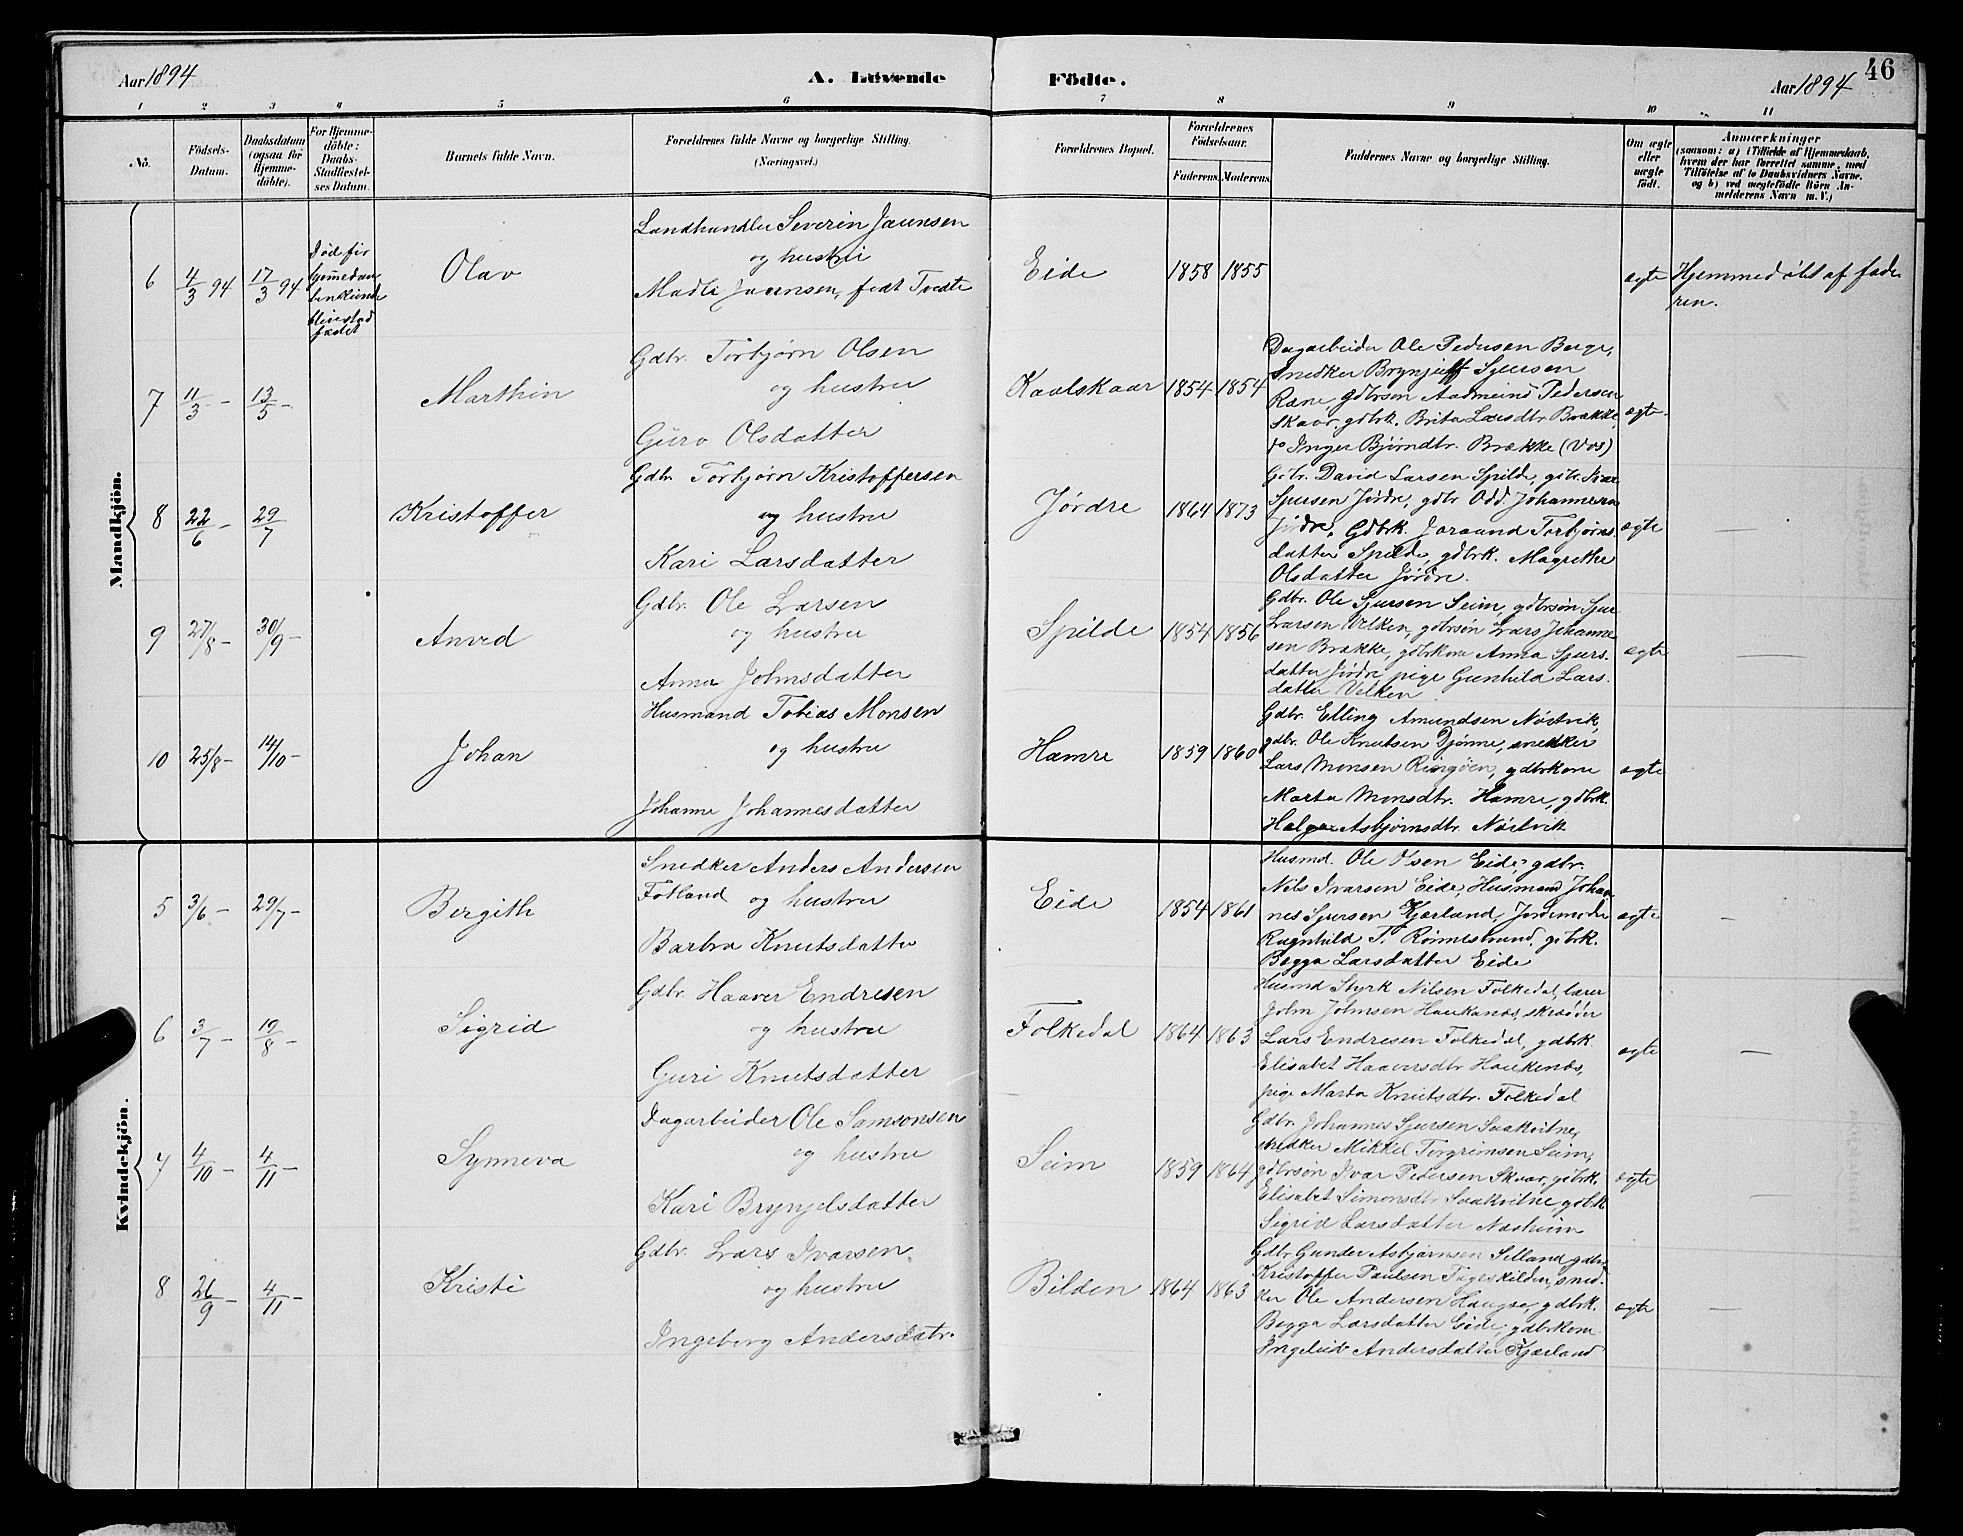 46
Aar 1894
A. Levende
Födte.
Aar 1894
1 2 3 4 5 6 7 8 9 10 11
No.
Födsels-
Datum.
Daabsdatum
(ogsaa for
Hjemme-
döbte).
For Hjemme-
döbte:
Daabs-
Stadfæstel-
ses Datum.
Barnets fulde Navn.
Forældrenes fulde Navne og borgerlige Stilling.
(Næringsvei.)
Forældrenes Bopæl.
Forældrenes
Födselsaar.
Faderens. Moderens.
Faddernes Navne og borgerlige Stilling.
Om ægte
eller
uægte
födt.
Anmærkninger
(saasom: a) i Tilfælde af Hjemmedaab,
hvem der har forrettet samme, med
Tilföielse af to Daabsvidners Navne.
og b) ved uægtefödte Börn An-
melderens Navn m. V.)
Mandkjön.
6
4/3 94
17/3 94
Død før
hjemmedaa
ben kunde
blive stad
fædet
Olav
Landhandler Severin Jaunsen
og hustru
Madli Jaunsen, født Tvedte
Eide
1858 1855
ægte
Hjemmedøbt af fade
ren.
7
11/3 -
13/5 -
Marthin
Gdbr. Torbjørn Olsen
og hustru
Guro Olsdatter
Kaalskaar
1854 1854
Dagarbeider Ole Pedersen Berge,
Snedker Brynjulf Sjursen
Ræne, gdbrsøn Aadmund Pedersen
Skaar, gdbrk. Brita Larsdtr. Brække,
do Inger Bjørndtr. Brække (Vos)
ægte
8
22/6 -
29/7
Kristoffer
Gdbr. Torbjørn Kristoffersen
og hustru
Kari Larsdatter
Jørdre
1864 1873
Gdbr. David Larsen Spilde, gdbr. Ivar
Sjursen Jørdre, gdbr Odd Johannesen
Jørdre, Gdbrk. Joraand Torbjørns-
datter Spilde, gdbrk. Magrethe
Olsdatter Jørdre.
ægte
9
27/8 -
30/9 -
Anved
Gdbr. Ole Larsen
og hustru
Anna Johnsdatter
Spilde
1854 1856
Gdbr. Ole Sjursen Seim, gdbrsøn Sjur
Larsen Velken, gdbrsøn Lars Johanne
sen Brække, gdbrkone Anna Sjurs-
datter Jørdre, pige Gunhild Lars-
datter Velken
ægte
10
25/8 -
14/10 -
Johan
Husmand Tobias Monsen
og hustru
Johanne Johannesdatter
Hamre
1859 1860
Gdbr. Elling Amundsen Nøstvik,
gdbr. Ole Knutsen Djønne, snedker
Lars Monsen Ringøen, gdbrkone
Marta Monsdtr. Hamre, gdbrk.
Helga Asbjørnsdtr. Nøstvik
ægte
Kvindekjön.
5
3/6 -
29/7 -
Bergith
Snedker Anders Andersen
Folland og hustru
Barbra Knutsdatter
Eide
1854 1861
Husmd. Ole Olsen Eide, gdbr.
Nils Ivarsen Eide, Husmand Johan-
nes Sjursen Kjærland, Jordemoder
Ragnhild T. Rønnestrand, gdbrk.
Begga Larsdatter Eide
ægte
6
3/7 -
19/8 -
Sigrid
Gdbr. Haaver Endresen
og hustru
Guri Knutsdatter
Folkedal
1864 1863
Husmd Styrk Nilsen Folkedal, lærer
John Johnsen Haukanæs, skræder
Lars Endresen Folkedal, gdbrk
Elisabet Haaversdtr. Haukenæs,
pige Marta Knutsdtr. Folkedal
ægte
7
4/10 -
4/11 -
Synneva
Dagarbeider Ole Samsonsen
og hustru
Kari Brynjelsdatter
Seim
1859 1864
Gdbr. Johannes Sjursen Saakvitne,
snedker Mikkel Torgrimsen Seim,
gdbrsøn Ivar Pedersen Skaar, gdbrk.
Elisabet Simonsdtr Saakvitne, gdbrk
Sigrid Larsdatter Næsheim
ægte
8
26/9 -
4/11 -
Kristi
Gdbr. Lars Ivarsen
og hustru
Ingeborg Andersdatr.
Bilden
1864 1863
Gdbr Gunder Asbjørnsen Selland, gdbr
Kristoffer Paulsen Tageskilden, sned-
ker Ole Andersen Haugse, gdbrk.
Begga Larsdatter Eide, gdbrkone
Ingelid Andersdatter Kjærland
ægte